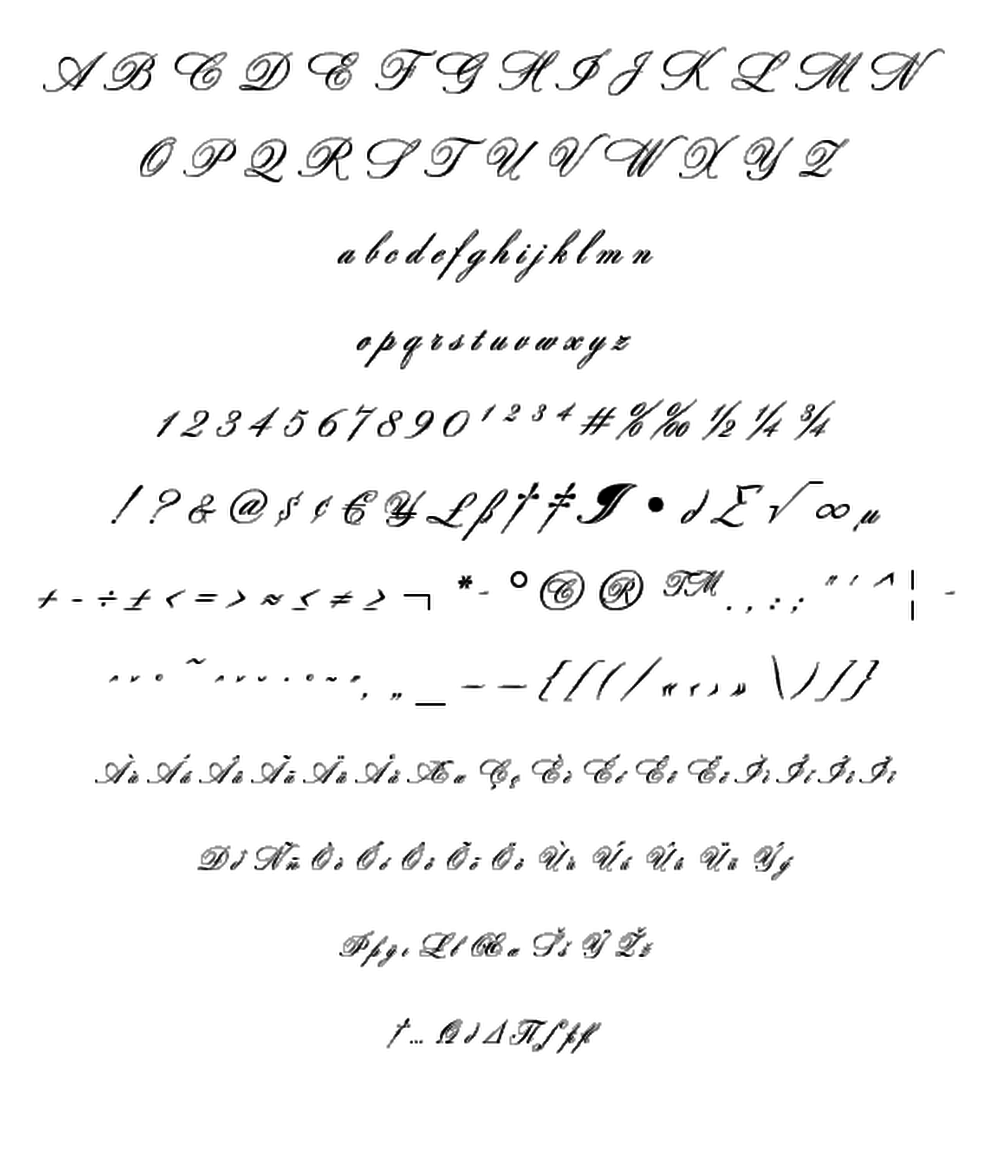 A B C D E F G H I J K L M N
O P Q R S T U V W X Y Z
a b c d e f g h i j k l m n
o p q r s t u v w x y z
1 2 3 4 5 6 7 8 9 0 ¹ ² ³ ⁴ # % ‰ ½ ¼ ¾
! ? & @ $ ¢ € ¥ £ ß † ‡ ¶ • ∂ Σ √ ∞ µ
+ - ÷ ± < = > ≈ ≤ ≠ ≥ ¬ * - ° © ® ™ . , : ; " ' ^ ¦ -
{ [ ( / « ‹ › » \ ) ] }
À à Á á Â â Ã ã Ä ä Å å Æ æ Ç ç È è É é Ê ê Ë ë Ì ì Í í Î î Ï ï
Ñ ñ Ò ò Ó ó Ô ô Õ õ Ö ö Ù ù Ú ú Û û Ü ü Ý ý
Þ þ Œ œ Š š Ÿ Ž ž
… Ω ∂ ∆ ∏ ∫ fi fl